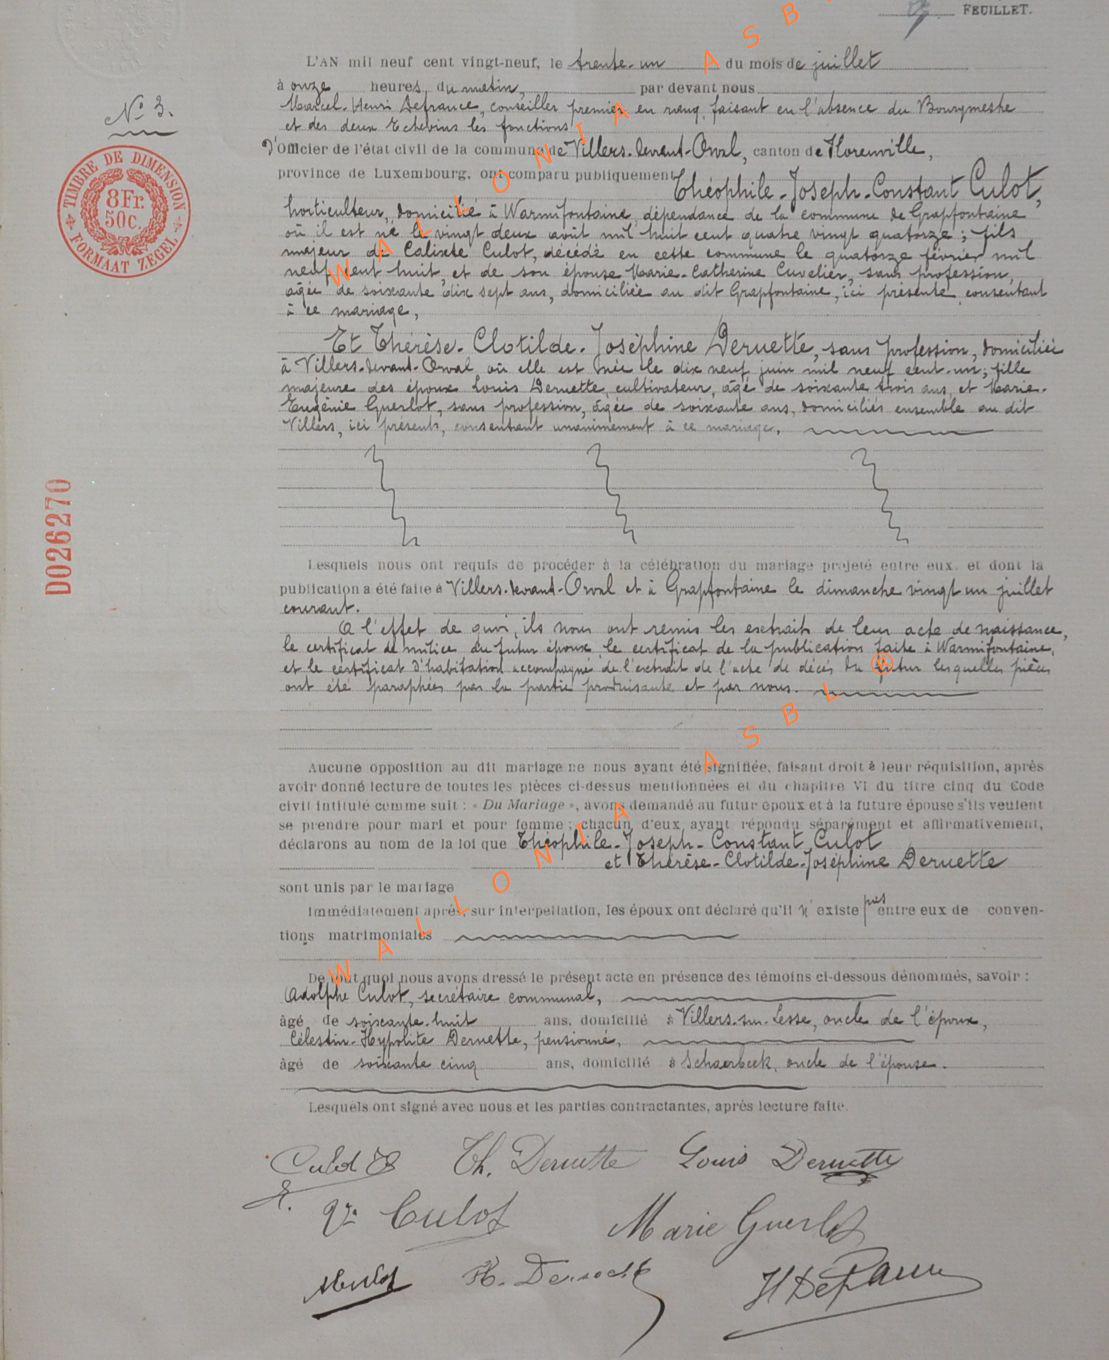 FEUILLET.
L'AN mil neuf cent vingt-neuf, le trente-un du mois de juillet
à onze heures, du matin, par devant nous
Marcel-Henri Defrance, conseiller premier en rang, faisant en l'absence du Bourgmestre
et des deux Echevins les fonctions
N° 3.
d'Officier de l'état civil de la commune de Villers-devant-Orval, canton de Florenville,
TIMBRE DE DIMENSION
8 Fr. 50c.
FORMAAT ZEGEL
province de Luxembourg, ont comparu publiquement Théophile-Joseph-Constant Culot,
horticulteur, domicilié à Warmifontaine, dépendance de la commune de Grapfontaine
où il est né le vingt deux avôit mil huit cent quatre vingt quatorze ; fils
majeur de Calixte Culot, décédé en cette commune le quatorze février mil
neuf cent huit, et de son épouse Marie-Catherine Cuvelier, sans profession,
âgée de soixante dix sept ans, domiciliée au dit Grapfontaine, ici présente consentant
à ce mariage,
Et Thérèse-Clotilde-Joséphine Deruette, sans profession, domiciliée
à Villers-devant-Orval où elle est née le dix neuf juin mil neuf cent-un ; fille
majeure des époux Louis Deruette, cultivateur, âgé de soixante trois ans, et Marie-
Eugénie Guerlot, sans profession, âgée de soixante ans, domiciliés ensemble au dit
Villers, ici présents, consentant unanimement à ce mariage.
D026270
Lesquels nous ont requis de procéder à la célébration du mariage projeté entre eux, et dont la
publication a été faite à Villers-devant-Orval et à Grapfontaine le dimanche vingt un juillet
courant.
A l'effet de quoi, ils nous ont remis les extraits de leur acte de naissance,
le certificat de milice du futur époux, le certificat de la publication faite à Warmifontaine,
et le certificat d'habitation accompagné de l'extrait de l'acte de décès du futur lesquelles pièces
ont été paraphées par la partie produisante et par nous.
Aucune opposition au dit mariage ne nous ayant été signifiée, faisant droit à leur réquisition, après
avoir donné lecture de toutes les pièces ci-dessus mentionnées et du chapitre VI du titre cinq du Code
civil intitulé comme suit : « Du Mariage », avons demandé au futur époux et à la future épouse s'ils veulent
se prendre pour mari et pour femme ; chacun d'eux ayant répondu séparément et affirmativement,
déclarons au nom de la loi que Théophile-Joseph-Constant Culot
et Thérèse-Clotilde-Joséphine Deruette
sont unis par le mariage
Immédiatement après, sur interpellation, les époux ont déclaré qu'il n'existe pas entre eux de conven-
tions matrimoniales
De tout quoi nous avons dressé le présent acte en présence des témoins ci-dessous dénommés, savoir :
Adolphe Culot, secrétaire communal,
âgé de soixante-huit ans, domicilié à Villers-sur-Lesse, oncle de l'époux,
Célestin-Hypolite Deruette, pensionné,
âgé de soixante cinq ans, domicilié à Schaerbeek, oncle de l'épouse.
Lesquels ont signé avec nous et les parties contractantes, après lecture faite.
Culot Th. Deruette Louis Deruette
Vve Culot Marie Guerlot
H Defrance
WALLONIA ASBL
WALLONIA ASBL ®